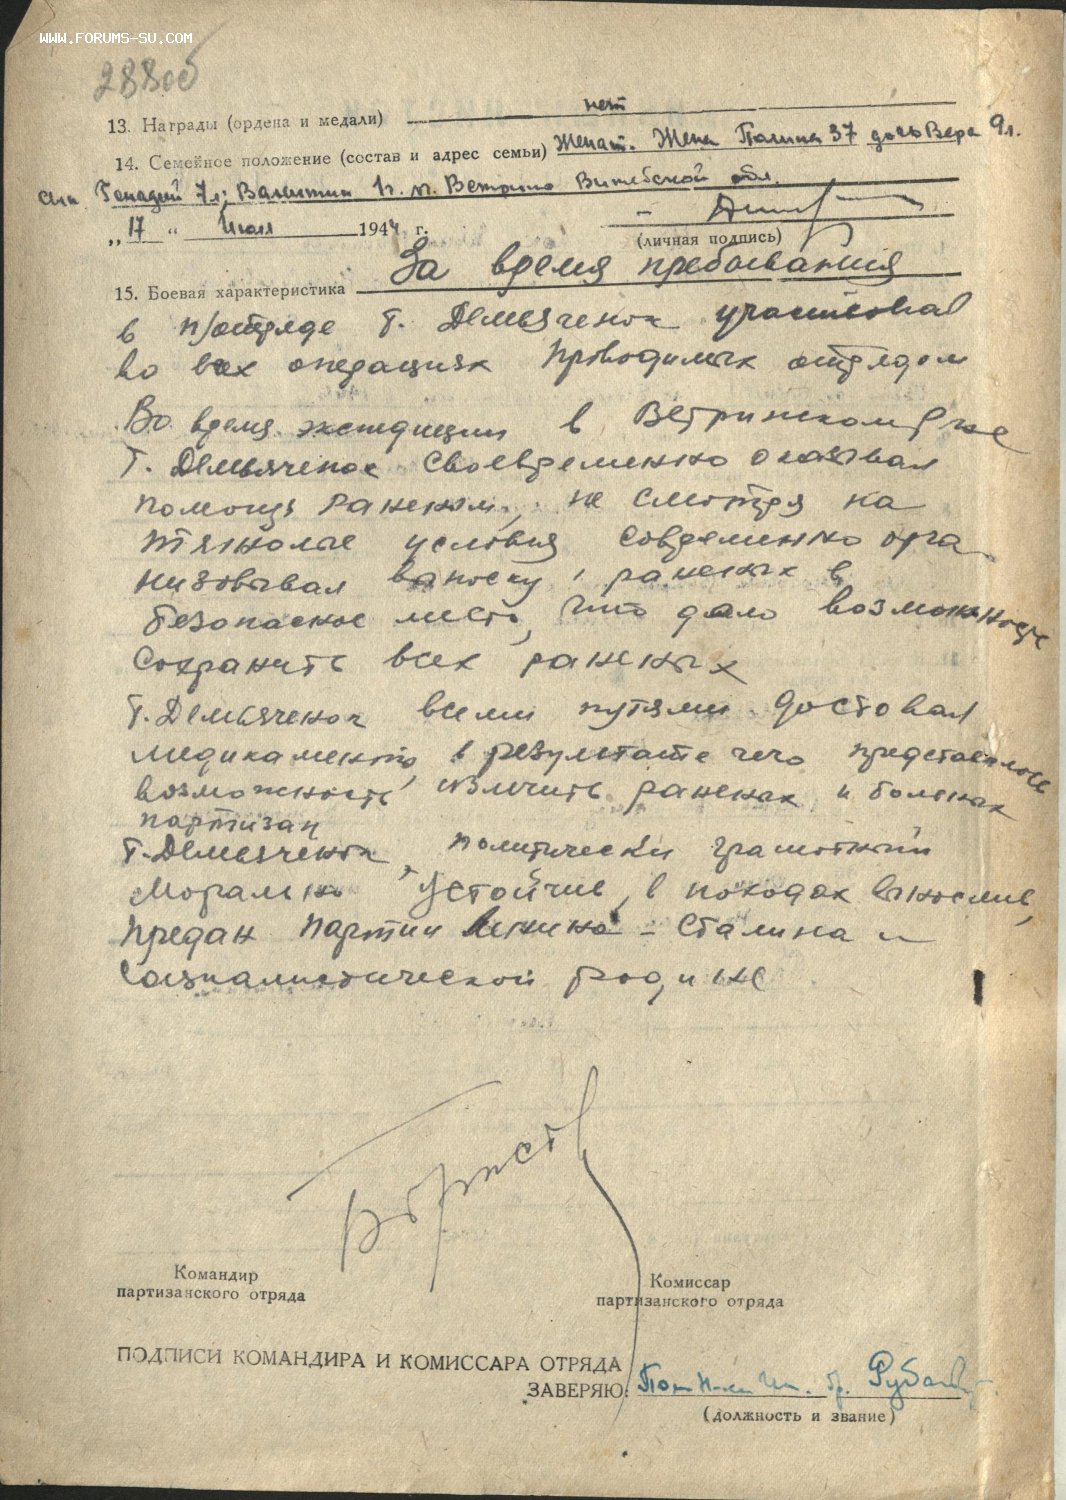 WWW.FORUMS-SU.COM
288об
13. Награды (ордена и медали) нет
14. Семейное положение (состав и адрес семьи) Женат. Жена Полина 37 дочь Вера 9л.
сын Генадий 7л; Валентин 1г. м. Ветрино Витебской обл.
„17“ Июля 1944 г.
(личная подпись)
15. Боевая характеристика За время пребывания
в п/отряде т. Демьяченок участвовал
во всех операциях проводимых отрядом
Во время экспедиции в Ветринском р-не
Т. Демьяченок своевременно оказывал
помощь раненым, не смотря на
тяжолые условия современно орга
низовывал выноску раненых в
безопасное место, что дало возможность
сохранить всех раненых
Т. Демьяченок всеми путями доставал
медикаменты, в результате чего представилось
возможность излечить раненых и больных
партизан
Т. Демьяченок, политически грамотный
Морально устойчив, в походах вынослив,
предан партии Ленина - Сталина и
Социалистической родине
Командир
партизанского отряда
Комиссар
партизанского отряда
ПОДПИСИ КОМАНДИРА И КОМИССАРА ОТРЯДА
ЗАВЕРЯЮ:
(должность и звание)